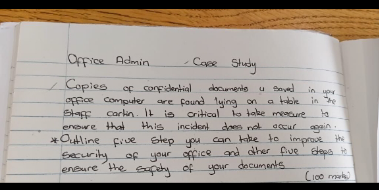 Office Admin - Case Study
Copies of confidential documents u saved in your
office computer are found lying on a table in the
staff cantn. It is critical to take measure to
ensure that this incident does not occur again.
* Outline five step you can take to improve the
security of your office and other five steps to
ensure the safety of your documents
(100 marks)